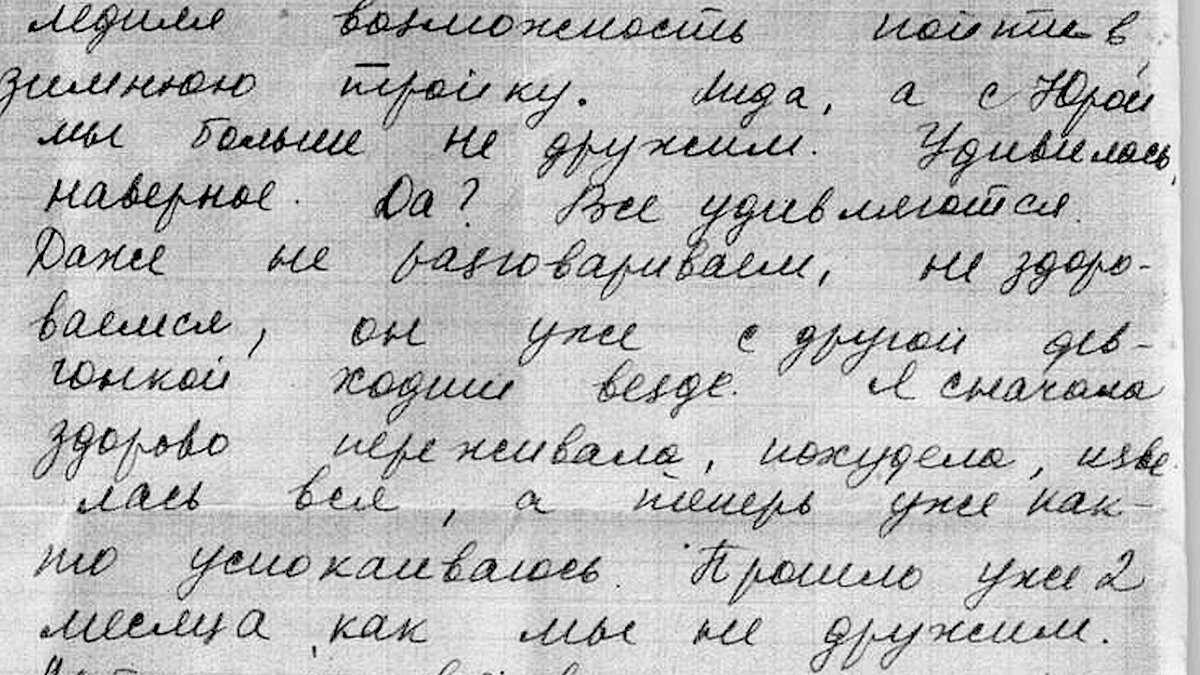 возможность пойти в
зимнюю тройку. Лида, а с Юрой
мы больше не дружим. Удивилась,
наверное. Да? Все удивляются.
Даже не разговариваем, не здоро-
ваемся, он уже с другой дев-
чонкой ходит везде. Я сначала
здорово переживала, похудела, изве
лась вся, а теперь уже как-
то успокаиваюсь. Прошло уже 2
месяца, как мы не дружим.